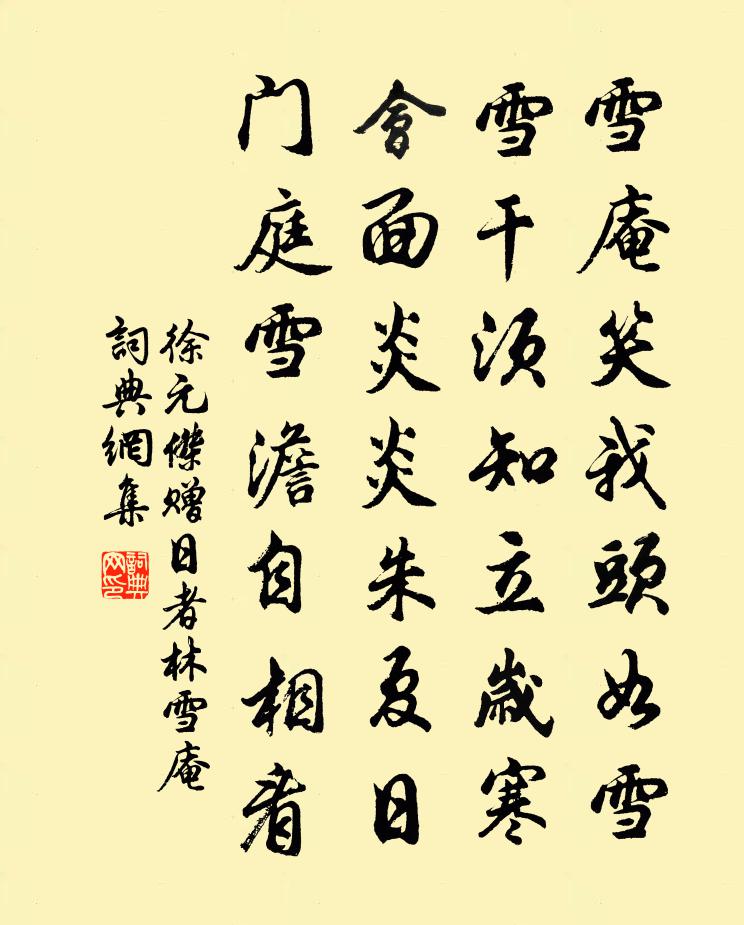 雪庵笑我頭如雪
雪干須知立歲寒
會面炎炎朱夏日
门庭雪澹自相看
徐元傑赠日者林雪庵
詞典網集
詞典网印